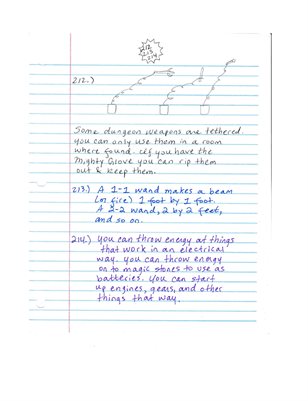 212
213
214
212.)
Some dungeon weapons are tethered
you can only use them in a room
where found. If you have the
Mighty Glove you can rip them
out & keep them.
213.) A 1-1 wand makes a beam
(or fire) 1 foot by 1 foot.
A 2-2 wand, 2 by 2 feet,
and so on.
214.) You can throw energy at things
that work in an electrical
way. You can throw energy
on to magic stones to use as
batteries. You can start
up engines, gears, and other
things that way.